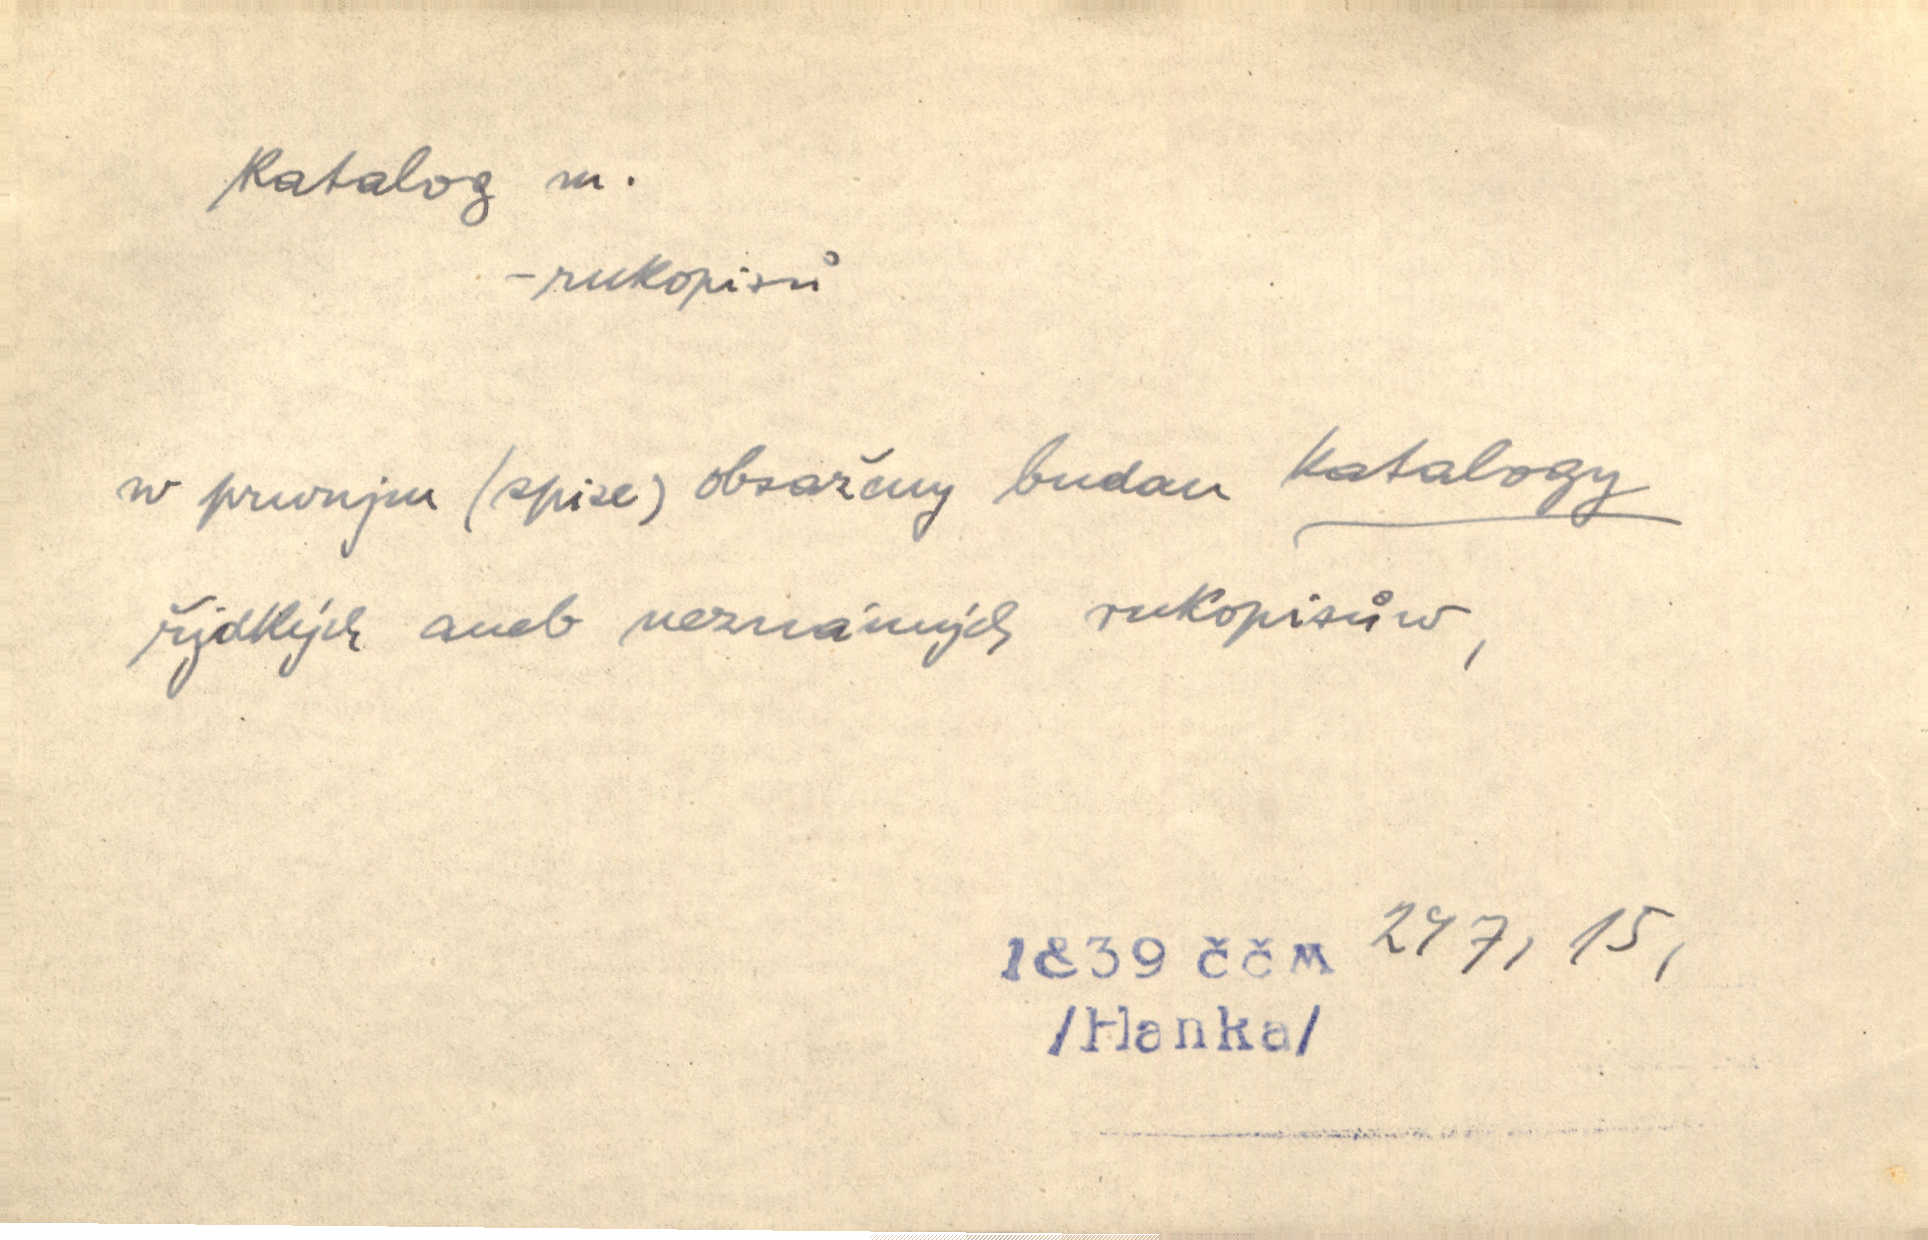 Katalog m.
-rukopisů
w prwnjm (spise) obsaženy budau katalogy
řjdkých aneb neznámých rukopisůw,
1839 ČČM 247, 15,
/Hanka/